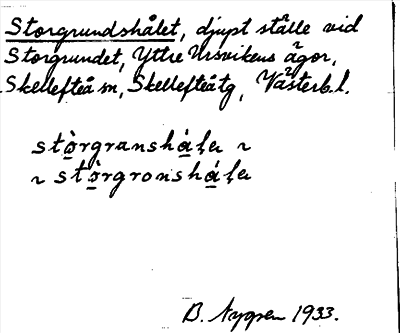 Storgrundshålet, djupt ställe vid
Storgrundet, Yttre Ursvikens ägor,
Skellefteå sn, Skellefteåtg, Västerb.l.
stò̱rgranshá̱ḷa ~
~ stò̱rgronshá̱ḷa
B. Nygren 1933.